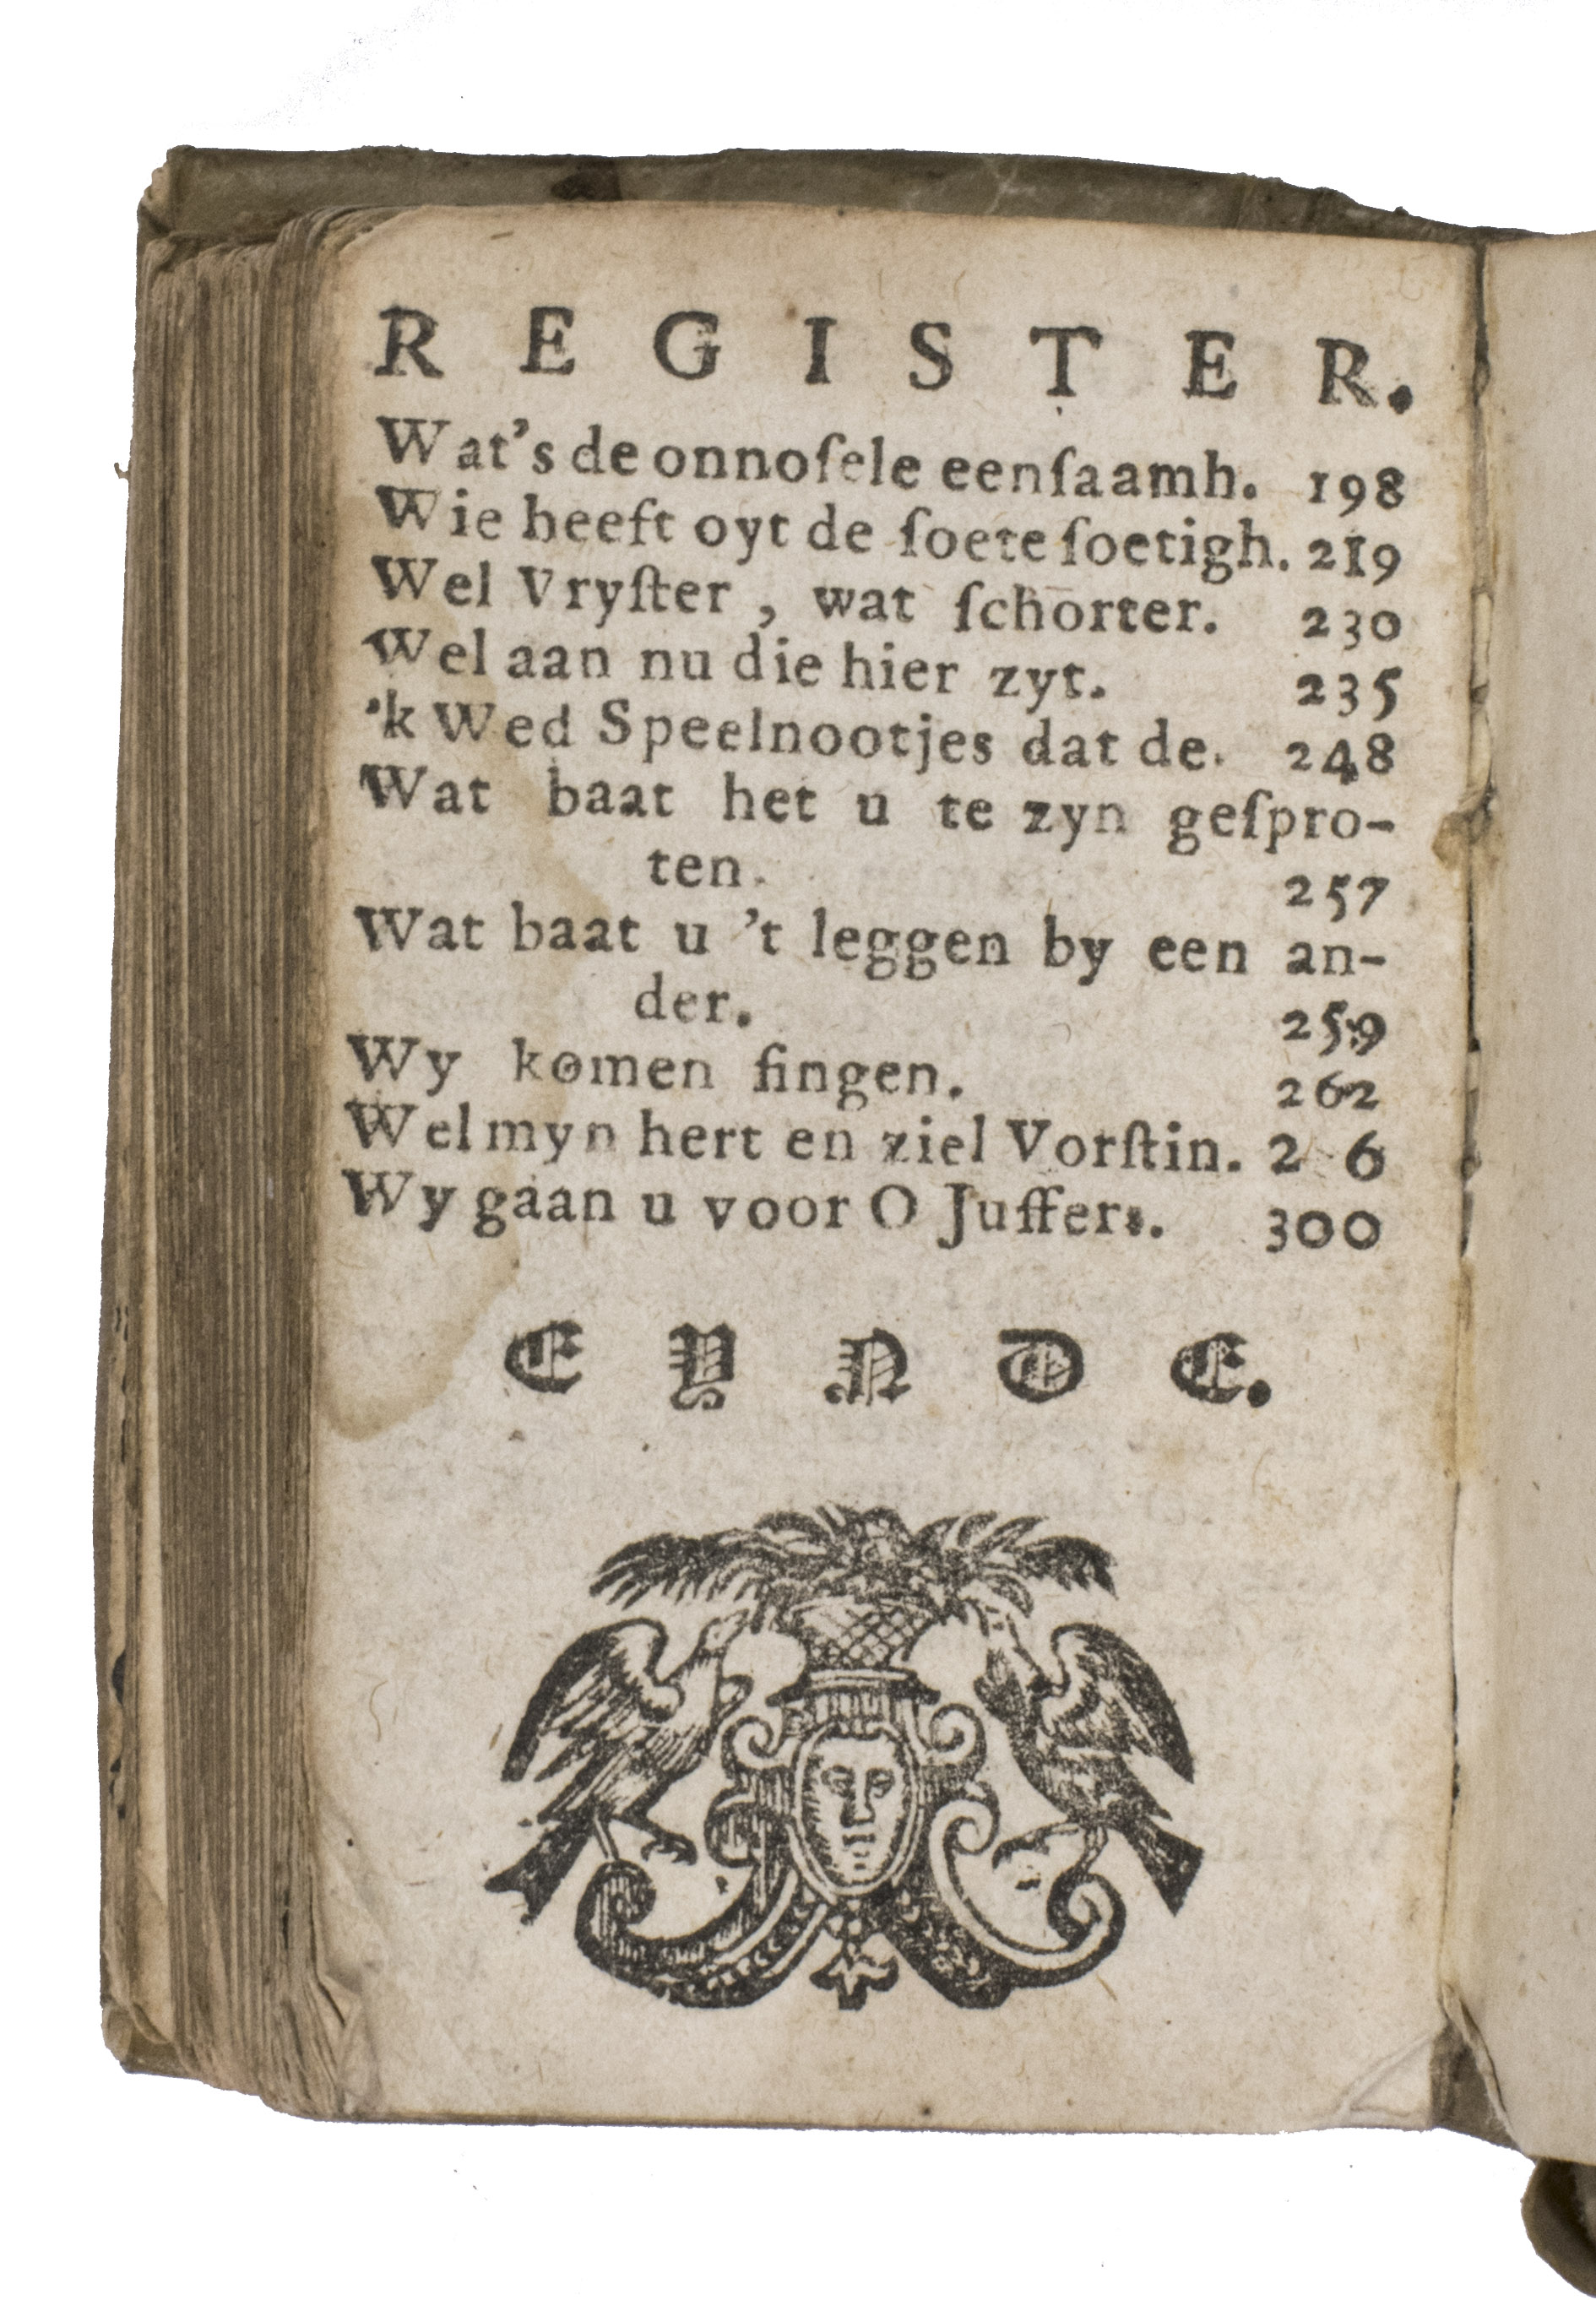 REGISTER.
Wat's de onnoſele eenſaamh. 198
Wie heeft oyt de ſoete ſoetigh. 219
Wel Vryſter, wat ſchorter. 230
Wel aan nu die hier zyt. 235
'k Wed Speelnootjes dat de. 248
Wat baat het u te zyn geſpro-
ten. 257
Wat baat u 't leggen by een an-
der. 259
Wy komen ſingen. 262
Wel myn hert en ziel Vorſtin. 2 6
Wy gaan u voor O Juffers. 300
EYNDE.